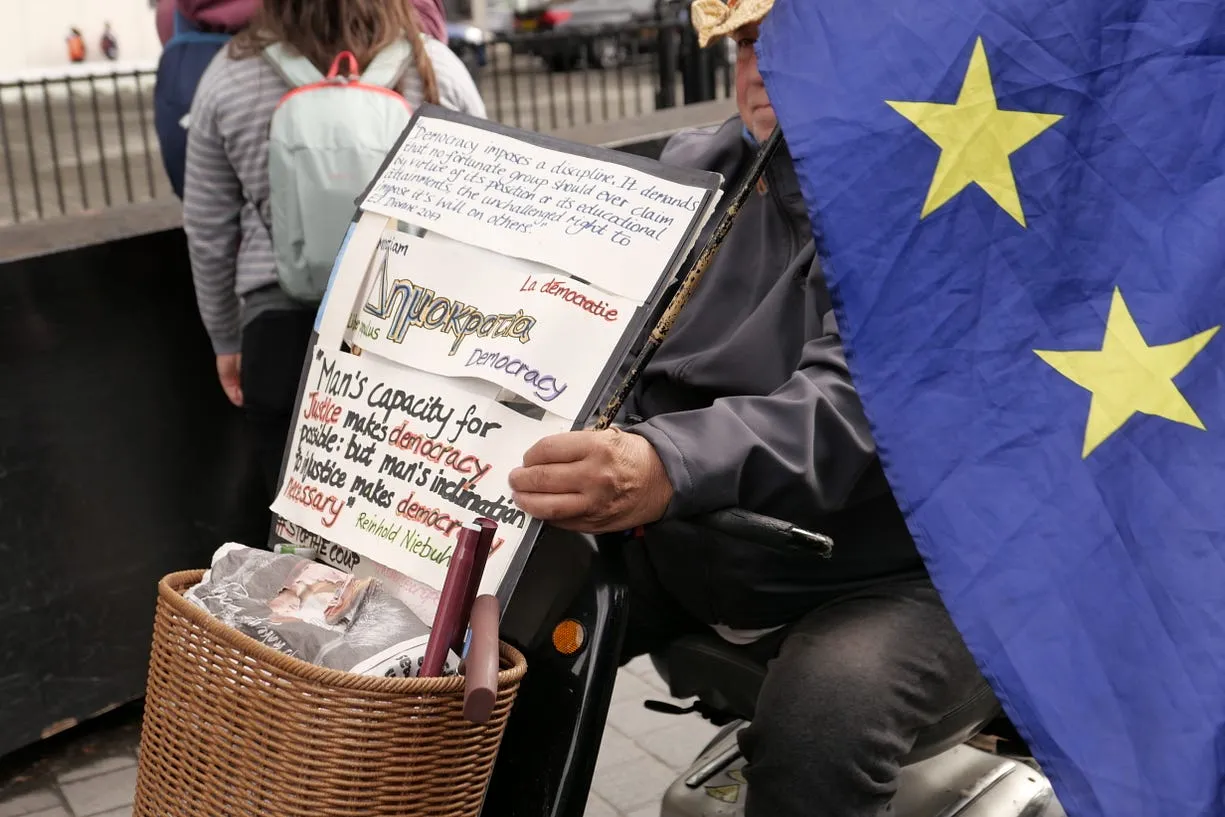 "Democracy imposes a discipline. It demands
that no fortunate group should ever claim
by virtue of its position or its educational
attainments, the unchallenged right to
impose it's will on others."
2019
La démocratie
Δημοκρατία
Democracy
"Man's capacity for
Justice makes democracy
possible: but man's inclination
to injustice makes democracy
necessary"
Reinhold Niebuh
#STOP THE COUP